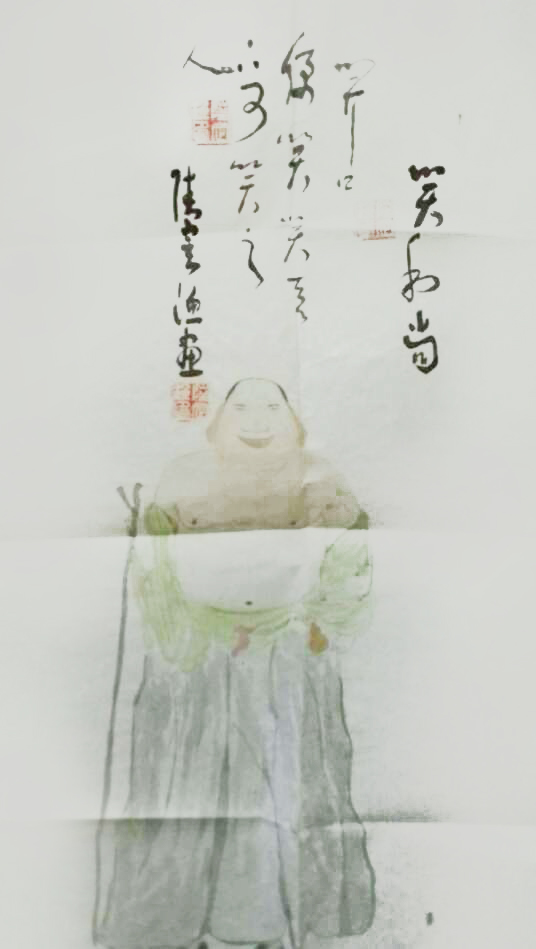 笑和尚
開口
便笑笑天
下可笑之
人
陸雲漁畫